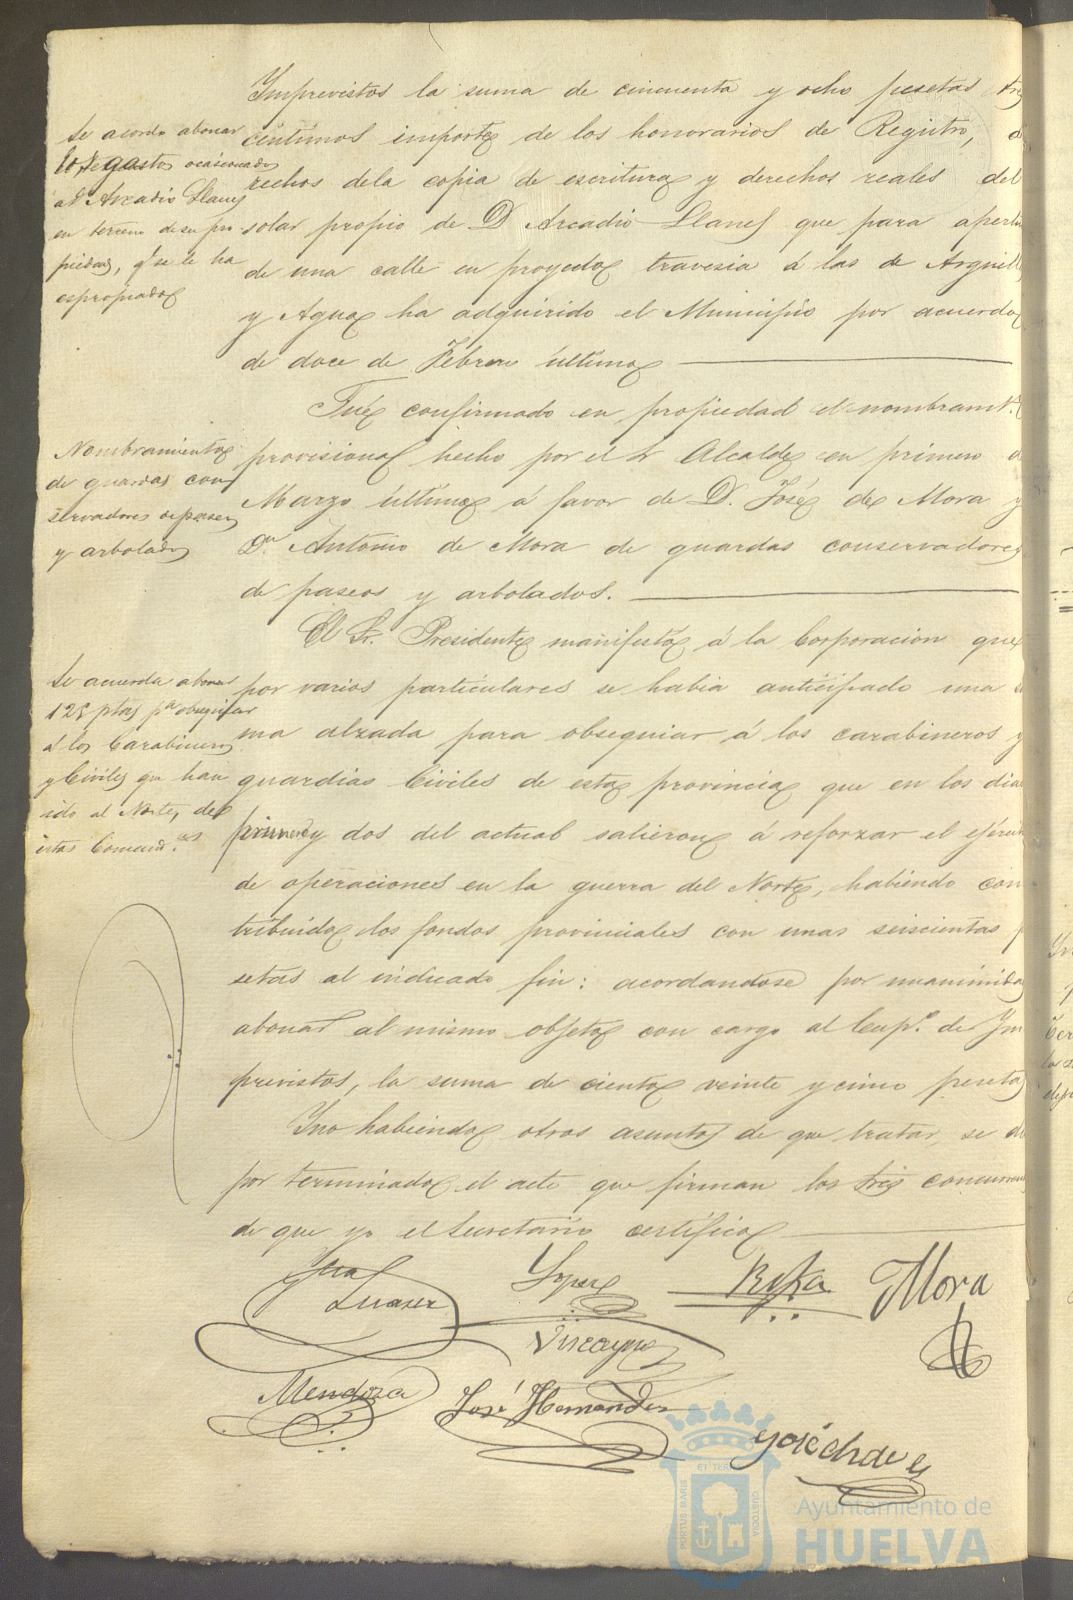 Imprevistos la suma de cincuenta y ocho pesetas tres
centimos importe de los honorarios de Registro, de
rechos dela copia de escritura y derechos reales del
solar propio de D Arcadio Llanes que para apertu
de una calle en proyecto travesia á las de Arguell
y Agua ha adquirido el Municipio por acuerdo
de doce de Febrero último
Se acordo abonar
los gastos ocasionados
á D Arcadio Llanes
en terreno de su pro
piedad, q.e se le ha
espropiado
Fué confirmado en propiedad el nombramt.o
provisional hecho por el Sr Alcalde en primero d
Marzo último á favor de D. José de Mora y
Dn Antonio de Mora de guardas conservadores
de paseos y arbolados.
Nombramiento
de guardas con
servadores de paseos
y arbolados
El Sr. Presidente manifestó á la Corporacion que
por varios particulares se habia anticipado una su
ma alzada para obsequiar á los carabineros y
guardias Civiles de esta provincia que en los dias
primero y dos del actual salieron á reforzar el ejércit
de operaciones en la guerra del Norte, habiendo con
tribuido los fondos provinciales con unas seiscientas p
setas al indicado fin: acordandose por unanimidad
abonar al mismo objeto con cargo al Cap.o de Im
previstos, la suma de ciento veinte y cinco pesetas
Se acuerda abonar
125 ptas pa obsequiar
á los Carabineros
y Civiles que han
ido al Norte, de
estas Comand.as
Y no habiendo otros asuntos de que tratar, se dió
por terminado el acto que firman los Sres concurren
de que yo el Secretario certifico
Lopez
Mora
Vizcayno
Mendoza
José Hernandez
PORTUS MARIS
ET TERRE
CUSTODIA
Ayuntamiento de
HUELVA